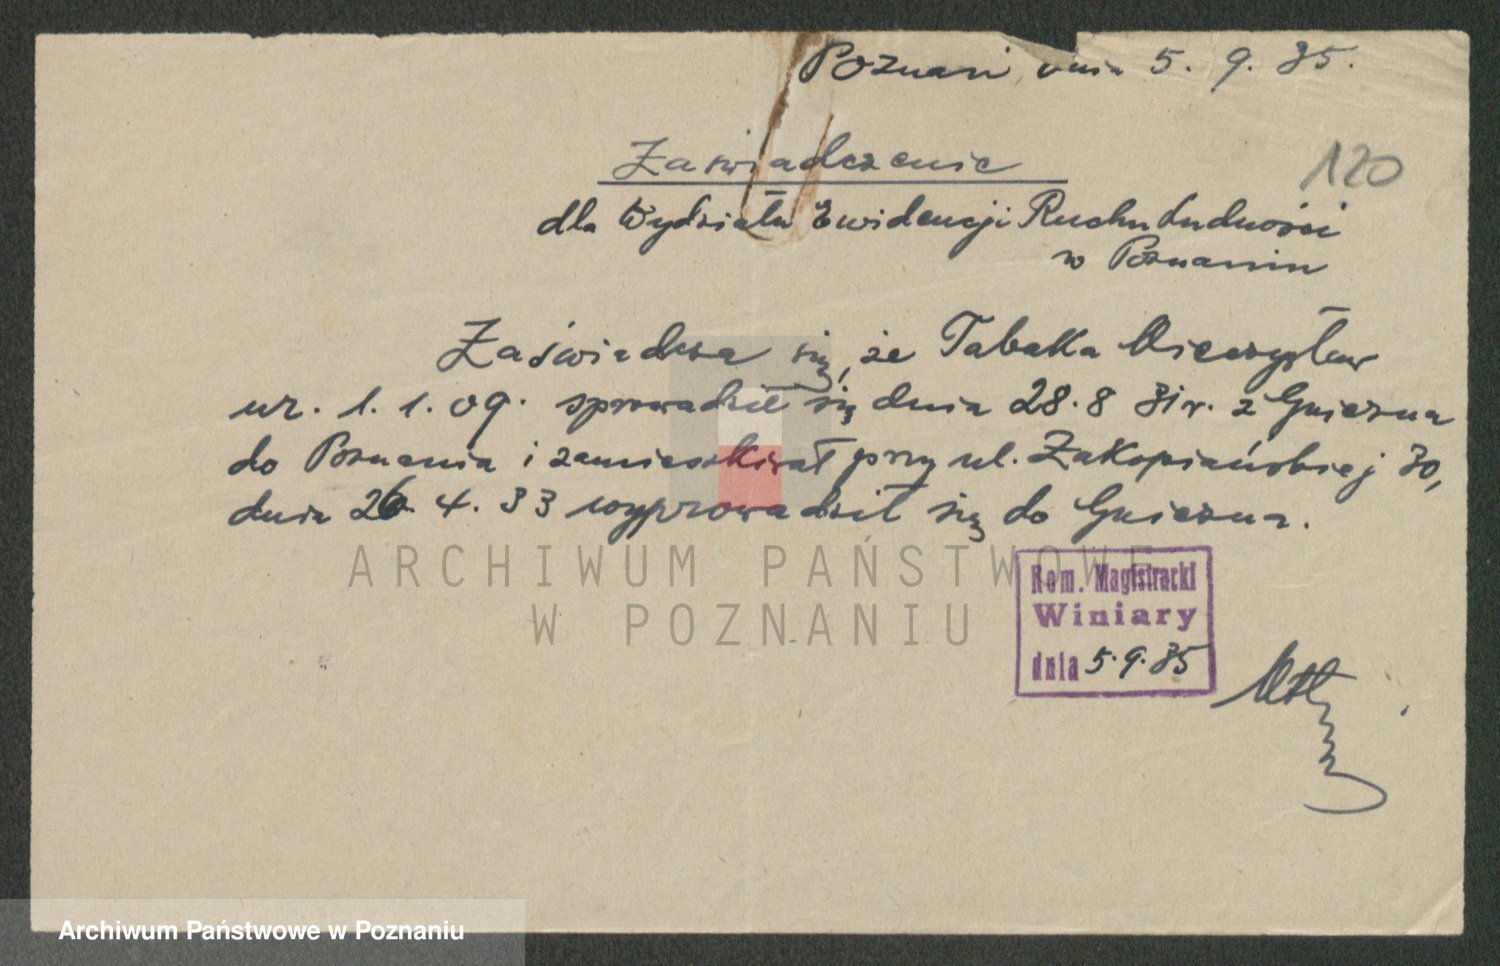 Poznań, dnia 5. 9. 35.
Zaświadczenie
120
dla Wydziału Ewidencji Ruchu Ludności
w Poznaniu
Zaświadcza się, że Tabaka Mieczysław
ur. 1. 1. 09. sprowadził się dnia 28. 8 31 r. z Gniezna
do Poznania i zamieszkiwał przy ul. Zakopiańskiej 30,
dnia 26. 4. 33 wyprowadził się do Gniezna.
ARCHIWUM PAŃSTWOWE
W POZNANIU
Kom. Magistracki
Winiary
dnia 5. 9. 35
Archiwum Państwowe w Poznaniu